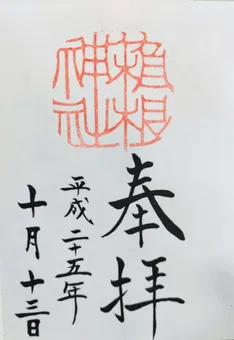 箱根
神社
奉拝
平成二十五年
十月十三日